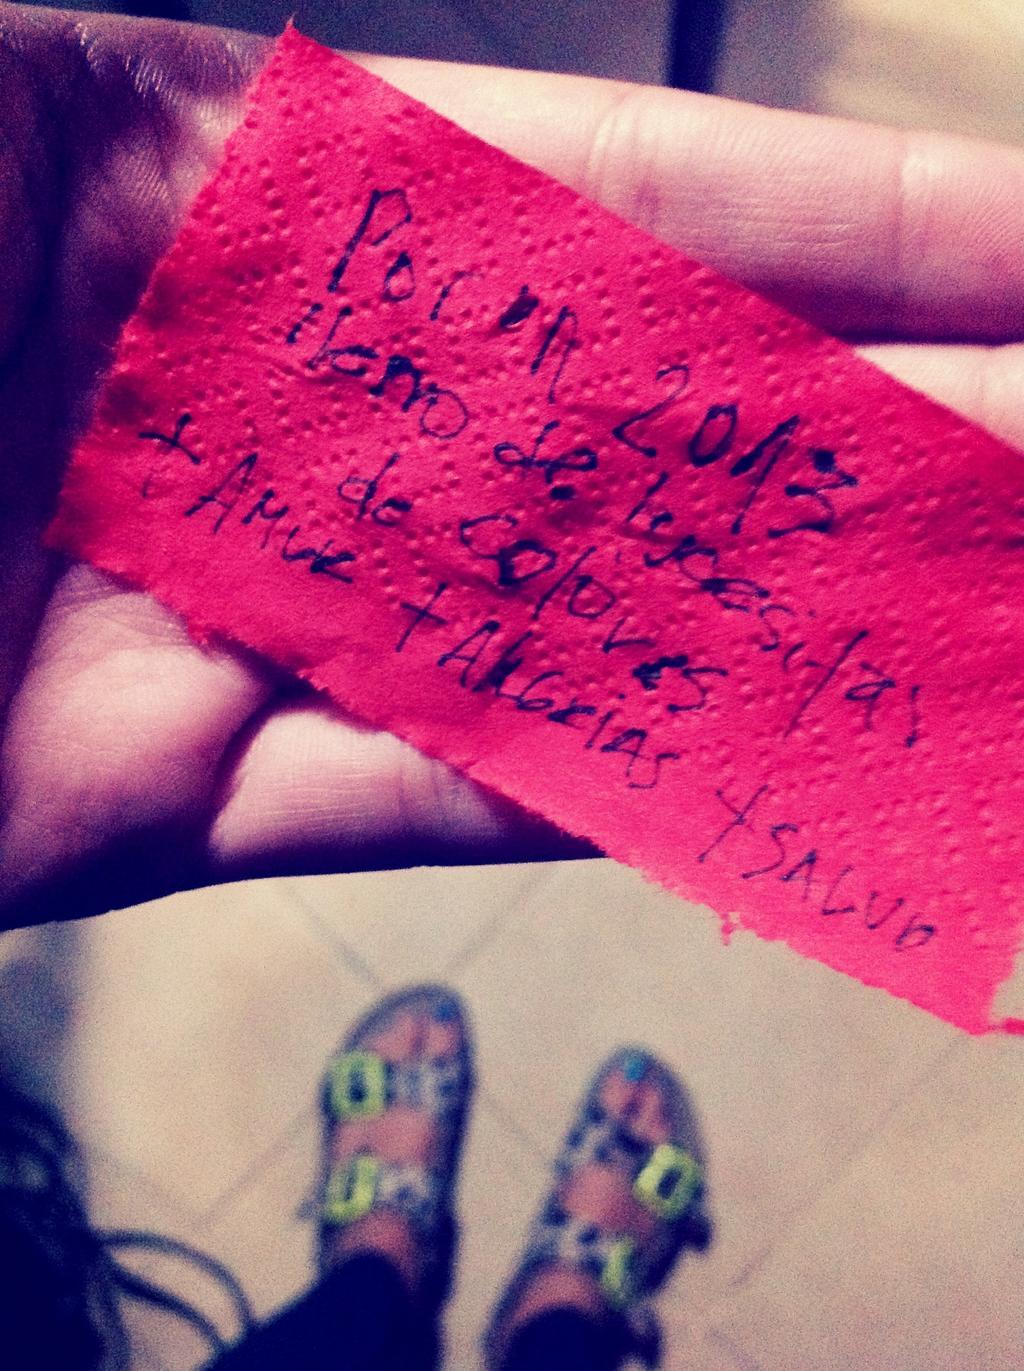 Por un 2013
lleno de lucesitas
de colores
+ AMOR + ALEGRIAS Y SALUD